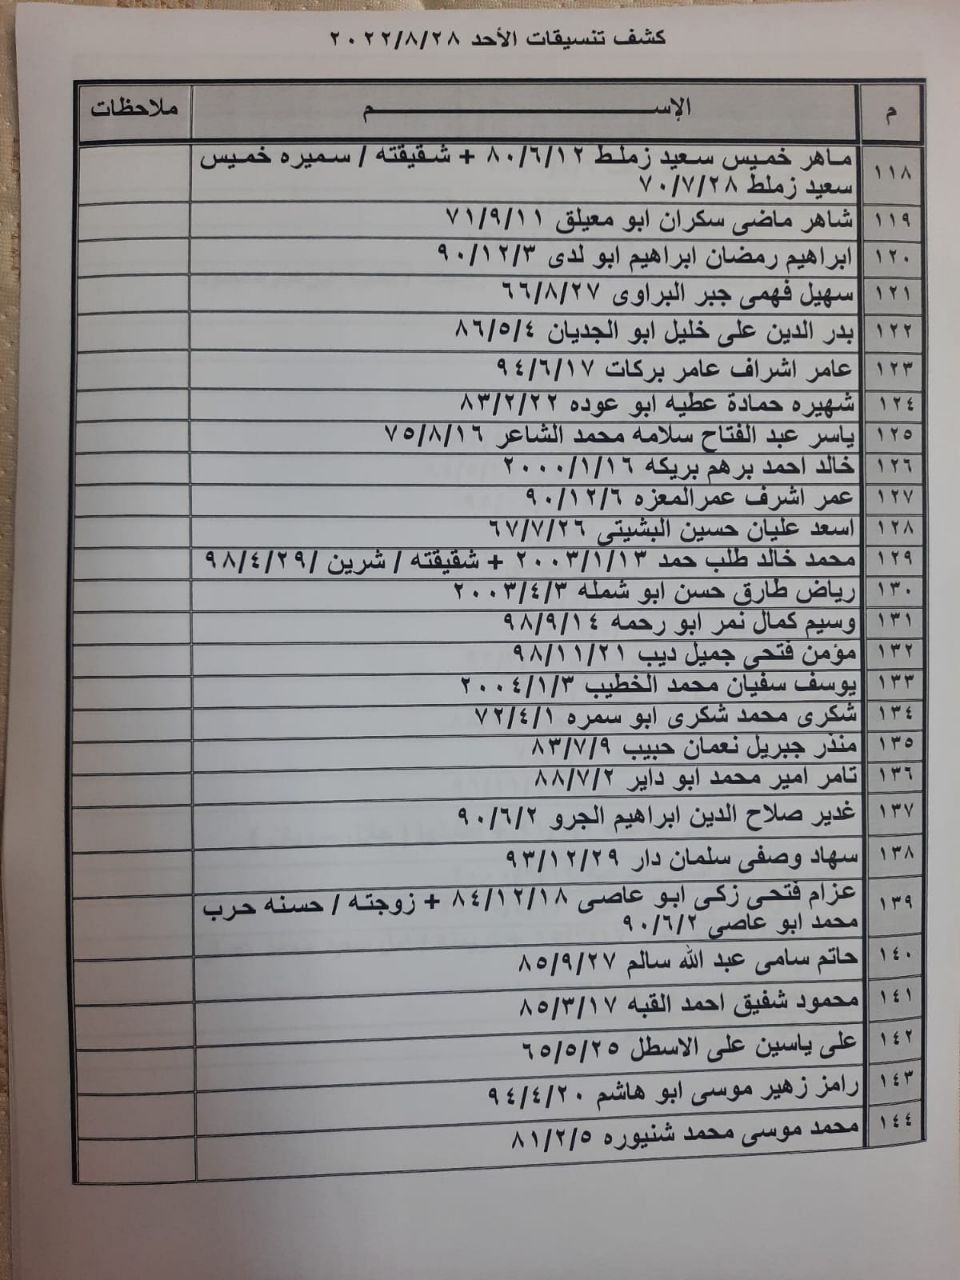 كشف تنسيقات الأحد ٢٠٢٢/٨/٢٨
م الإسـم ملاحظات
١١٨ ماهر خميس سعيد زملط ٨٠/٦/١٢ + شقيقته / سميره خميس
سعيد زملط ٧٠/٧/٢٨
١١٩ شاهر ماضى سكران ابو معيلق ٧١/٩/١١
١٢٠ ابراهيم رمضان ابراهيم ابو لدى ٩٠/١٢/٣
١٢١ سهيل فهمى جبر البراوى ٦٦/٨/٢٧
١٢٢ بدر الدين على خليل ابو الجديان ٨٦/٥/٤
١٢٣ عامر اشراف عامر بركات ٩٤/٦/١٧
١٢٤ شهيره حمادة عطيه ابو عوده ٨٣/٢/٢٢
١٢٥ ياسر عبد الفتاح سلامه محمد الشاعر ٧٥/٨/١٦
١٢٦ خالد احمد برهم بريكه ٢٠٠٠/١/١٦
١٢٧ عمر اشرف عمرالمعزه ٩٠/١٢/٦
١٢٨ اسعد عليان حسين البشيتي ٦٧/٧/٢٦
١٢٩ محمد خالد طلب حمد ٢٠٠٣/١/١٣ + شقيقته / شرين /٩٨/٤/٢٩
١٣٠ رياض طارق حسن ابو شمله ٢٠٠٣/٤/٣
١٣١ وسيم كمال نمر ابو رحمه ٩٨/٩/١٤
١٣٢ مؤمن فتحى جميل ديب ٩٨/١١/٢١
١٣٣ يوسف سفيان محمد الخطيب ٢٠٠٤/١/٣
١٣٤ شكرى محمد شكرى ابو سمره ٧٢/٤/١
١٣٥ منذر جبريل نعمان حبيب ٨٣/٧/٩
١٣٦ تامر امير محمد ابو داير ٨٨/٧/٢
١٣٧ غدير صلاح الدين ابراهيم الجرو ٩٠/٦/٢
١٣٨ سهاد وصفى سلمان دار ٩٣/١٢/٢٩
١٣٩ عزام فتحى زكى ابو عاصى ٨٤/١٢/١٨ + زوجته / حسنه حرب
محمد ابو عاصي ٩٠/٦/٢
١٤٠ حاتم سامى عبد الله سالم ٨٥/٩/٢٧
١٤١ محمود شفيق احمد القبه ٨٥/٣/١٧
١٤٢ على ياسين على الاسطل ٦٥/٥/٢٥
١٤٣ رامز زهير موسى ابو هاشم ٩٤/٤/٢٠
١٤٤ محمد موسى محمد شنيوره ٨١/٢/٥